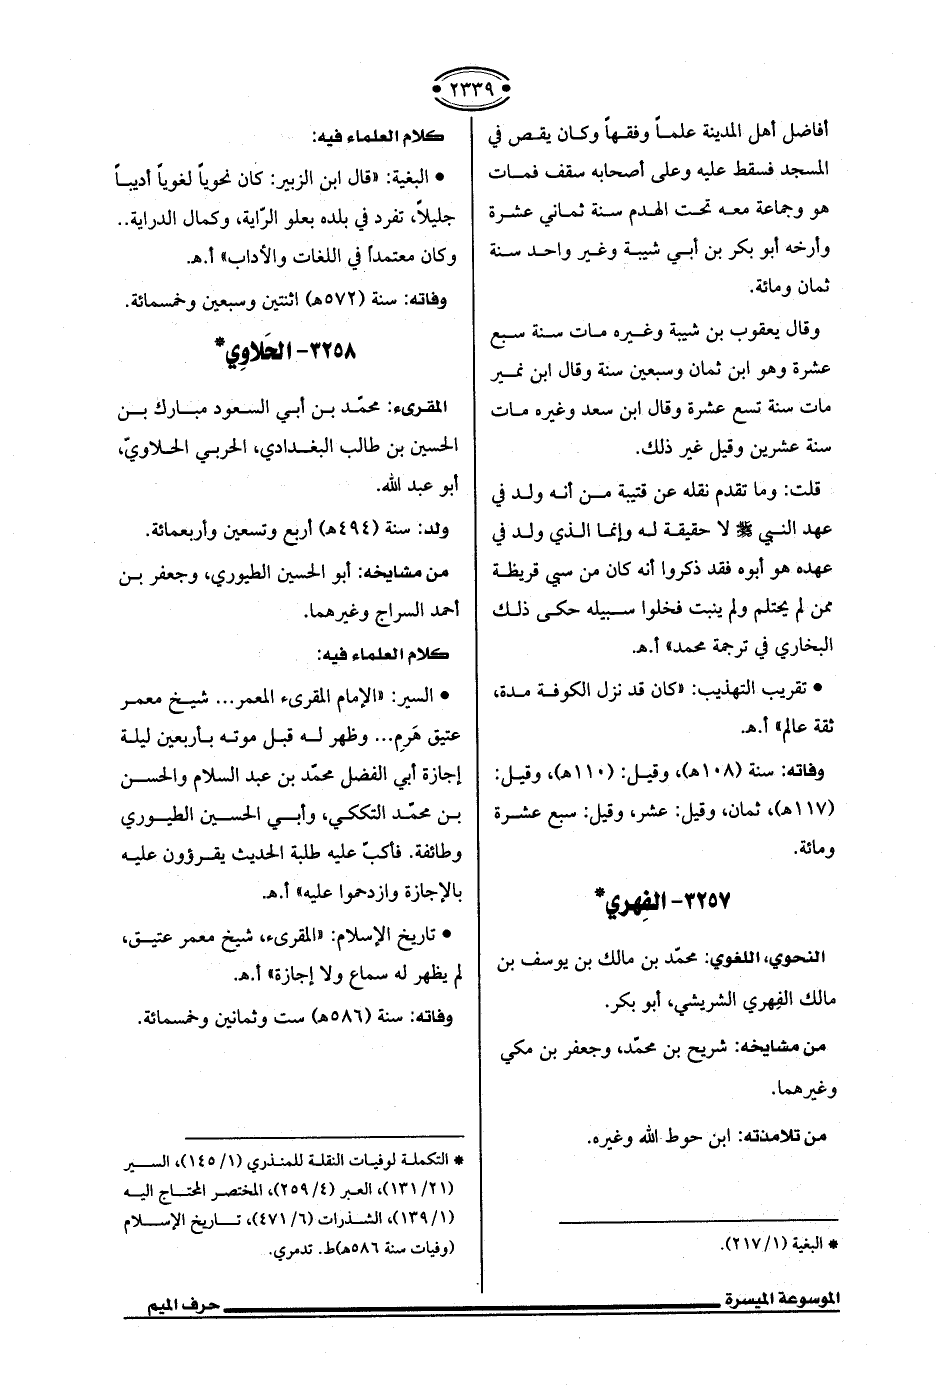 ٢٣٣٩
أفاضل أهل المدينة علماً وفقهاً وكان يقص في
المسجد فسقط عليه وعلى أصحابه سقف فمات
هو وجماعة معه تحت الهدم سنة ثماني عشرة
وأرخه أبو بكر بن أبي شيبة وغير واحد سنة
ثمان ومائة.
وقال يعقوب بن شيبة وغيره مات سنة سبع
عشرة وهو ابن ثمان وسبعين سنة وقال ابن نمير
مات سنة تسع عشرة وقال ابن سعد وغيره مات
سنة عشرين وقيل غير ذلك.
قلت: وما تقدم نقله عن قتيبة من أنه ولد في
عهد النبي ﷺ لا حقيقة له وإنما الذي ولد في
عهده هو أبوه فقد ذكروا أنه كان من سبي قريظة
ممن لم يحتلم ولم ينبت فخلوا سبيله حكى ذلك
البخاري في ترجمة محمد» أ.هـ.
• تقريب التهذيب: «كان قد نزل الكوفة مدة،
ثقة عالم» أ.هـ.
وفاته: سنة (١٠٨هـ)، وقيل: (١١٠هـ)، وقيل:
(١١٧هـ)، ثمان، وقيل: عشر، وقيل: سبع عشرة
ومائة.
٣٢٥٧- الفِهري*
النحوي، اللغوي: محمّد بن مالك بن يوسف بن
مالك الفِهري الشريشي، أبو بكر.
من مشايخه: شريح بن محمّد، وجعفر بن مكي
وغيرهما.
من تلامذته: ابن حوط الله وغيره.
* البغية (١/ ٢١٧).
كلام العلماء فيه:
• البغية: «قال ابن الزبير: كان نحوياً لغوياً أديباً
جليلاً، تفرد في بلده بعلو الرّاية، وكمال الدراية..
وكان معتمداً في اللغات والأداب» أ.هـ.
وفاته: سنة (٥٧٢هـ) اثنتين وسبعين وخمسمائة.
٣٢٥٨- الحَلاوِي*
المقرىء: محمّد بن أبي السعود مبارك بن
الحسين بن طالب البغدادي، الحربي الحلاويّ،
أبو عبد الله.
ولد: سنة (٤٩٤هـ) أربع وتسعين وأربعمائة.
من مشايخه: أبو الحسين الطيوري، وجعفر بن
أحمد السراج وغيرهما.
كلام العلماء فيه:
• السير: «الإمام المقرىء المعمر... شيخ معمر
عتيق هَرِم... وظهر له قبل موته بأربعين ليلة
إجازة أبي الفضل محمّد بن عبد السلام والحسن
بن محمّد التككي، وأبي الحسين الطيوري
وطائفة. فأكبّ عليه طلبة الحديث يقرؤون عليه
بالإجازة وازدحموا عليه» أ.هـ.
• تاريخ الإسلام: «المقرىء، شيخ معمر عتيق،
لم يظهر له سماع ولا إجازة» أ.هـ.
وفاته: سنة (٥٨٦هـ) ست وثمانين وخمسمائة.
* التكملة لوفيات النقلة للمنذري (١/ ١٤٥)، السير
(٢١/ ١٣١)، العبر (٤/ ٢٥٩)، المختصر المحتاج اليه
(١/ ١٣٩)، الشذرات (٦/ ٤٧١)، تاريخ الإسلام
(وفيات سنة ٥٨٦هـ)ط. تدمري.
الموسوعة الميسرة
حرف الميم